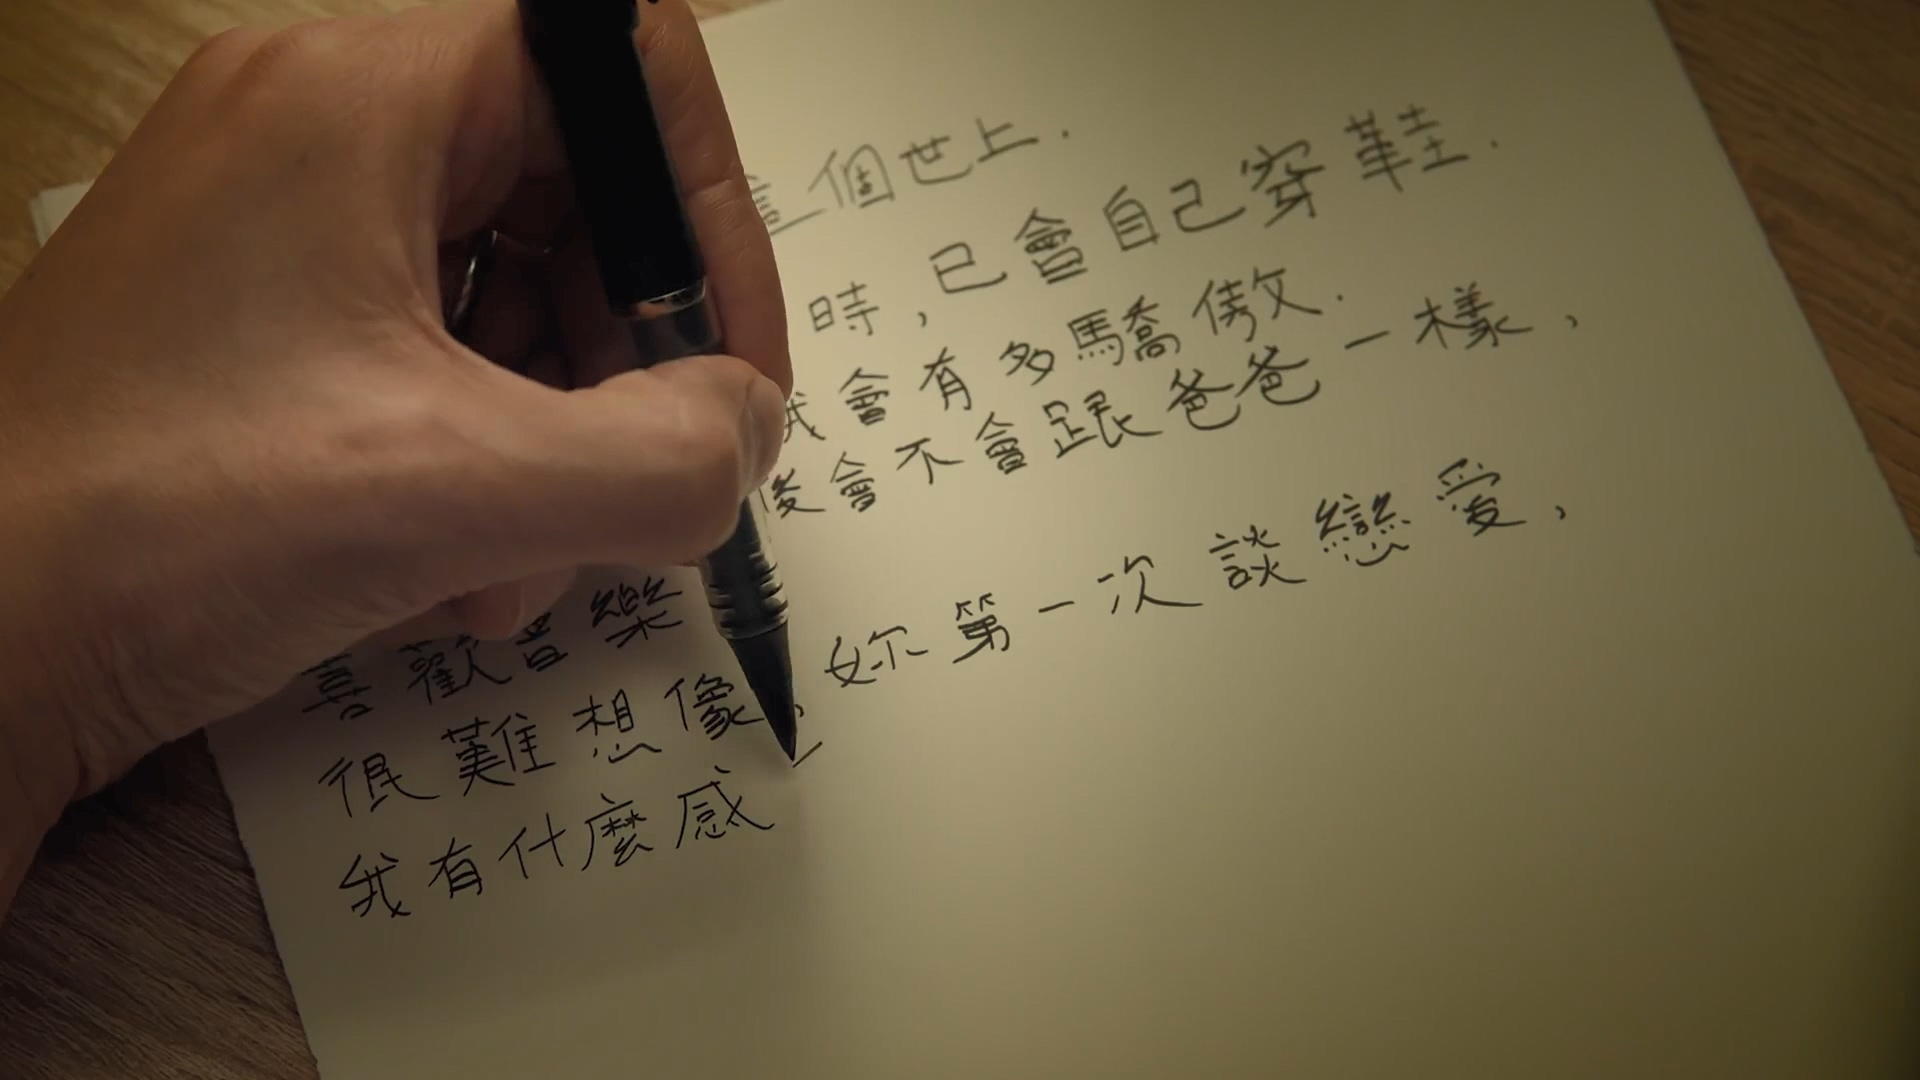 這個世上.
時,已會自己穿鞋.
我會有多驕傲.
後會不會跟爸爸一樣,
喜歡音樂
很難想像,妳第一次談戀愛,
我有什麼感